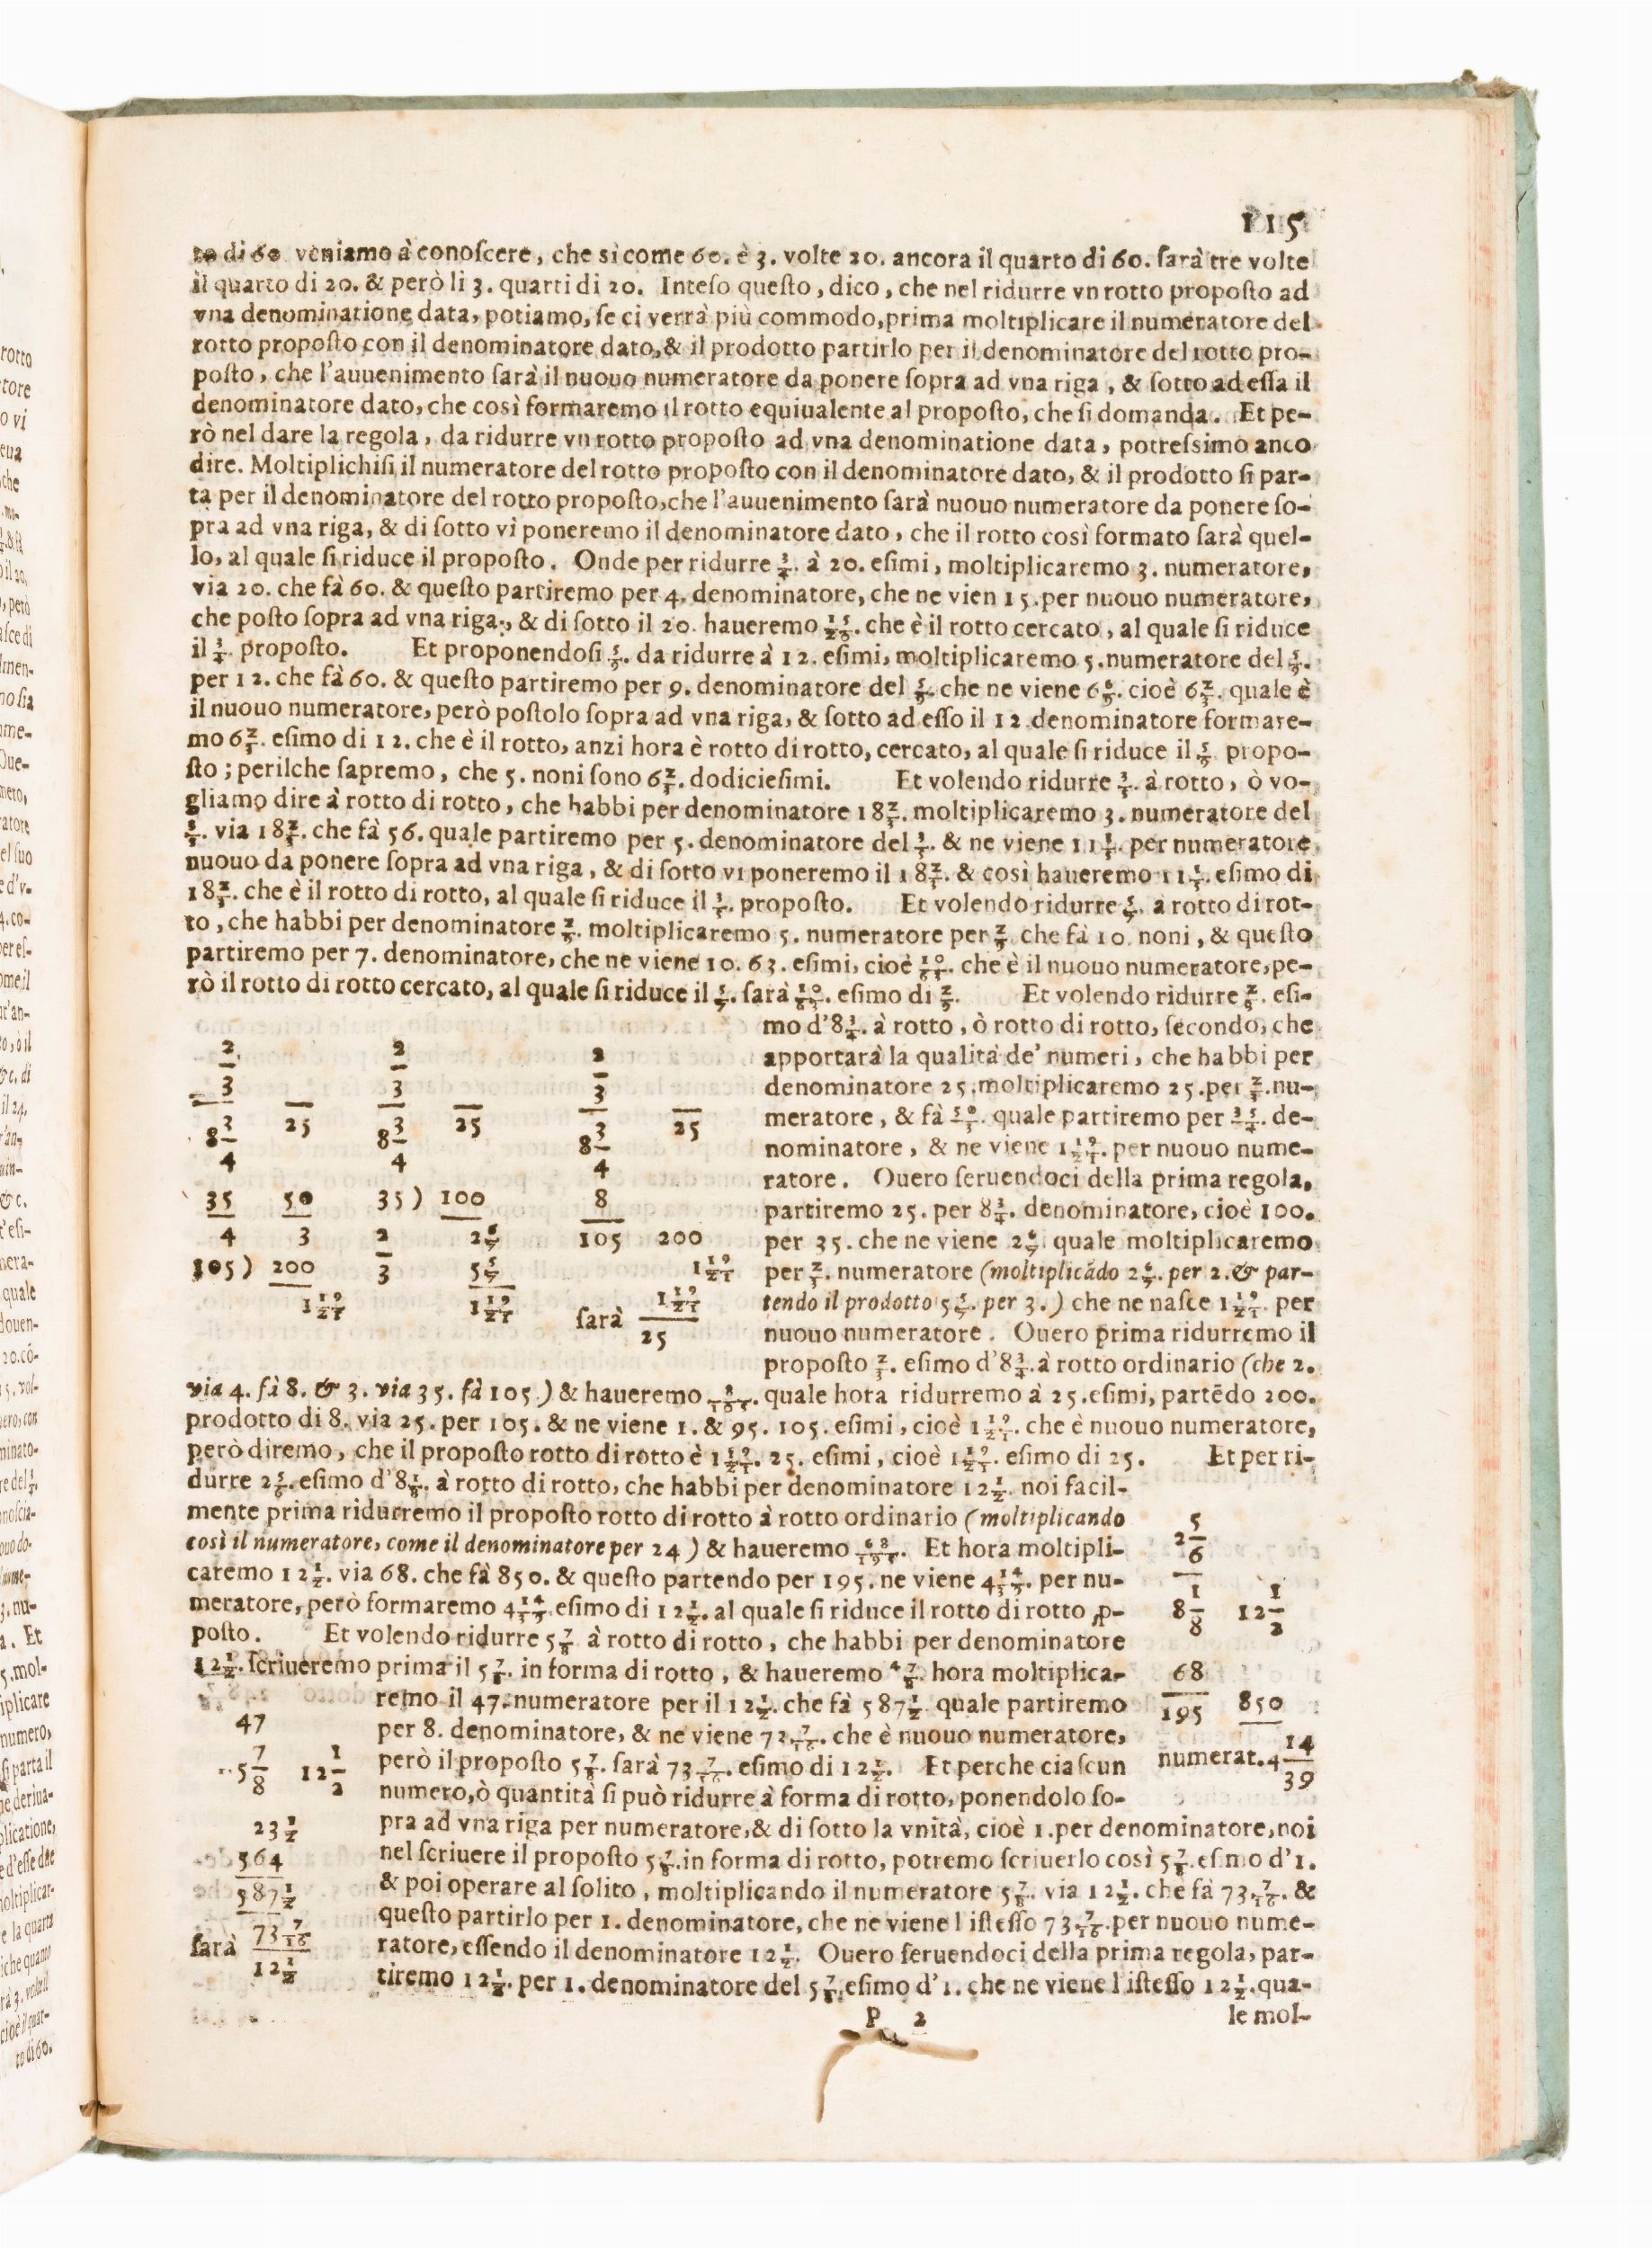 115
to di 60 veniamo à conoſcere, che sì come 60. è 3. volte 20. ancora il quarto di 60. ſarà tre volte
il quarto di 20. & però li 3. quarti di 20. Inteſo queſto, dico, che nel ridurre vn rotto propoſto ad
vna denominatione data, potiamo, ſe ci verrà più commodo, prima moltiplicare il numeratore del
rotto propoſto con il denominatore dato, & il prodotto partirlo per il denominatore del rotto pro-
poſto, che l'auuenimento ſarà il nuouo numeratore da ponere ſopra ad vna riga, & ſotto ad eſſa il
denominatore dato, che così formaremo il rotto equiualente al propoſto, che ſi domanda. Et pe-
rò nel dare la regola, da ridurre vn rotto propoſto ad vna denominatione data, potreſsimo anco
dire. Moltiplichiſi il numeratore del rotto propoſto con il denominatore dato, & il prodotto ſi par-
ta per il denominatore del rotto propoſto, che l'auuenimento ſarà nuouo numeratore da ponere ſo-
pra ad vna riga, & di ſotto vi poneremo il denominatore dato, che il rotto così formato ſarà quel-
lo, al quale ſi riduce il propoſto. Onde per ridurre 3/4. à 20. eſimi, moltiplicaremo 3. numeratore,
via 20. che fà 60. & queſto partiremo per 4. denominatore, che ne vien 15. per nuouo numeratore,
che poſto ſopra ad vna riga, & di ſotto il 20. haueremo 15/20. che è il rotto cercato, al quale ſi riduce
il 3/4. propoſto. Et proponendoſi 5/9. da ridurre à 12. eſimi, moltiplicaremo 5. numeratore del 5/9.
per 12. che fà 60. & queſto partiremo per 9. denominatore del 5/9. che ne viene 6 6/9. cioè 6 2/3. quale è
il nuouo numeratore, però poſtolo ſopra ad vna riga, & ſotto ad eſſo il 12 denominatore formare-
mo 6 2/3. eſimo di 12. che è il rotto, anzi hora è rotto di rotto, cercato, al quale ſi riduce il 5/9 propo-
ſto; perilche ſapremo, che 5. noni ſono 6 2/3. dodicieſimi. Et volendo ridurre 3/5. à rotto, ò vo-
gliamo dire à rotto di rotto, che habbi per denominatore 18 2/3. moltiplicaremo 3. numeratore del
3/5. via 18 2/3. che fà 56. quale partiremo per 5. denominatore del 3/5. & ne viene 11 1/5. per numeratore
nuouo da ponere ſopra ad vna riga, & di ſotto vi poneremo il 18 2/3. & così haueremo 11 1/5. eſimo di
18 2/3. che è il rotto di rotto, al quale ſi riduce il 3/5. propoſto. Et volendo ridurre 5/7. à rotto di rot-
to, che habbi per denominatore 2/9. moltiplicaremo 5. numeratore per 2/9 che fà 10. noni, & queſto
partiremo per 7. denominatore, che ne viene 10. 63. eſimi, cioè 10/63. che è il nuouo numeratore, pe-
rò il rotto di rotto cercato, al quale ſi riduce il 5/7. ſarà 10/63. eſimo di 2/9. Et volendo ridurre 2/3. eſi-
mo d'8 3/4. à rotto, ò rotto di rotto, ſecondo, che
apportarà la qualità de' numeri, che habbi per
denominatore 25. moltiplicaremo 25. per 2/3. nu-
meratore, & fà 50/3. quale partiremo per 35/4. de-
nominatore, & ne viene 1 19/21. per nuouo nume-
ratore. Ouero ſeruendoci della prima regola,
partiremo 25. per 8 3/4. denominatore, cioè 100.
per 35. che ne viene 2 6/7. quale moltiplicaremo
per 2/3. numeratore (moltiplicãdo 2 6/7. per 2. & par-
tendo il prodotto 5 5/7. per 3.) che ne naſce 1 19/21. per
nuouo numeratore. Ouero prima ridurremo il
propoſto 2/3. eſimo d'8 3/4. à rotto ordinario (che 2.
2/3 2/3 2/3
8 3/4 25 8 3/4 25 8 3/4 25
35/4 50/3 35) 100 8
2/3 2 6/7 105 200
105) 200 5 5/7 1 19/21
1 19/21 1 19/21 ſarà 1 19/21
25
via 4. fà 8. & 3. via 35. fà 105.) & haueremo 8/105. quale hora ridurremo à 25. eſimi, partẽdo 200.
prodotto di 8. via 25. per 105. & ne viene 1. & 95. 105. eſimi, cioè 1 19/21. che è nuouo numeratore,
però diremo, che il propoſto rotto di rotto è 1 19/21. 25. eſimi, cioè 1 19/21. eſimo di 25. Et per ri-
durre 2 5/6. eſimo d'8 1/8. à rotto di rotto, che habbi per denominatore 12 1/2. noi facil-
mente prima ridurremo il propoſto rotto di rotto à rotto ordinario (moltiplicando
così il numeratore, come il denominatore per 24) & haueremo 68/195. Et hora moltipli-
caremo 12 1/2. via 68. che fà 850. & queſto partendo per 195. ne viene 4 14/39. per nu-
meratore, però formaremo 4 14/39. eſimo di 12 1/2. al quale ſi riduce il rotto di rotto ꝓ-
poſto. Et volendo ridurre 5 7/8 à rotto di rotto, che habbi per denominatore
12 1/2. ſcriueremo prima il 5 7/8. in forma di rotto, & haueremo 47/8. hora moltiplica-
2 5/6
8 1/8 12 1/2
68
195 850
numerat. 4 14/39
remo il 47. numeratore per il 12 1/2. che fà 587 1/2. quale partiremo
per 8. denominatore, & ne viene 73 7/16. che è nuouo numeratore,
però il propoſto 5 7/8. ſarà 73 7/16. eſimo di 12 1/2. Et perche ciaſcun
numero, ò quantità ſi può ridurre à forma di rotto, ponendolo ſo-
pra ad vna riga per numeratore, & di ſotto la vnità, cioè 1. per denominatore, noi
nel ſcriuere il propoſto 5 7/8. in forma di rotto, potremo ſcriuerlo così 5 7/8. eſimo d'1.
& poi operare al ſolito, moltiplicando il numeratore 5 7/8. via 12 1/2. che fà 73 7/16. &
queſto partirlo per 1. denominatore, che ne viene l'iſteſſo 73 7/16. per nuouo nume-
ratore, eſſendo il denominatore 12 1/2. Ouero ſeruendoci della prima regola, par-
tiremo 12 1/2. per 1. denominatore del 5 7/8. eſimo d'1. che ne viene l'iſteſſo 12 1/2. qua-
47
5 7/8 12 1/2
23 1/2
564
587 1/2
ſarà 73 7/16
12 1/2
P 2
le mol-